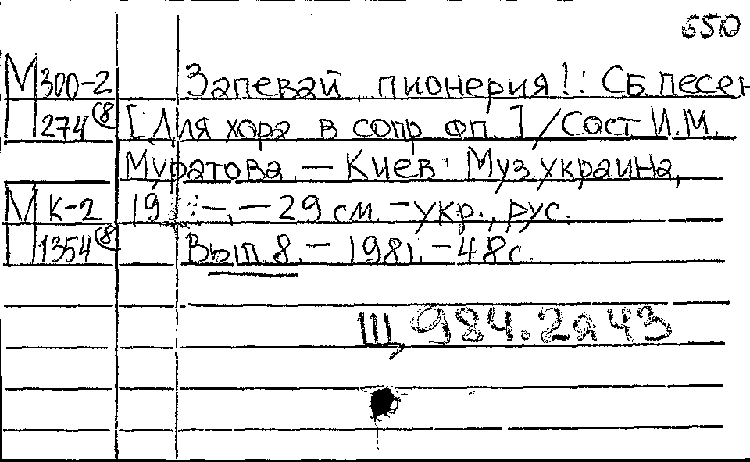 650
М 300-2 Запевай пионерия!: Сб. песен
П 274⑧ [Для хора в сопр. фп.] / Сост И.М.
Муратова. — Киев: Муз. украина,
М К-2 19 — 29 см. — укр., рус.
П 1354⑧ Вып. 8. — 1981. — 48 с.
Щ 984.2я43